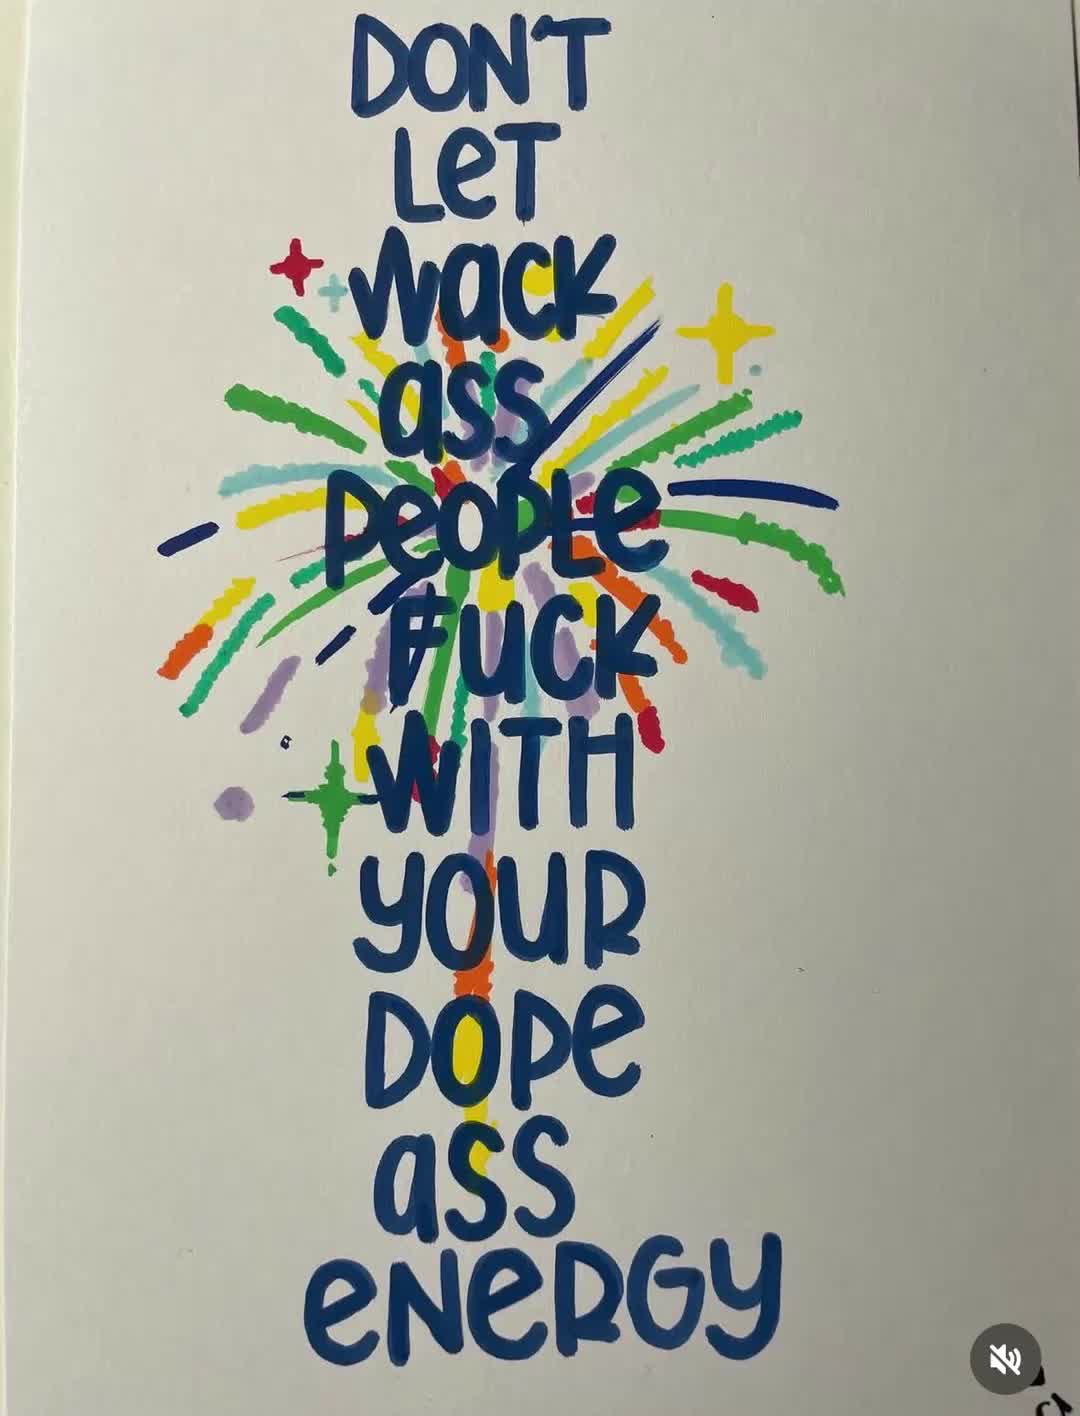 DON'T
LeT
Wack
ass
PeOPLe
FUCK
WITH
YOUR
DOPe
ass
eNeRGY